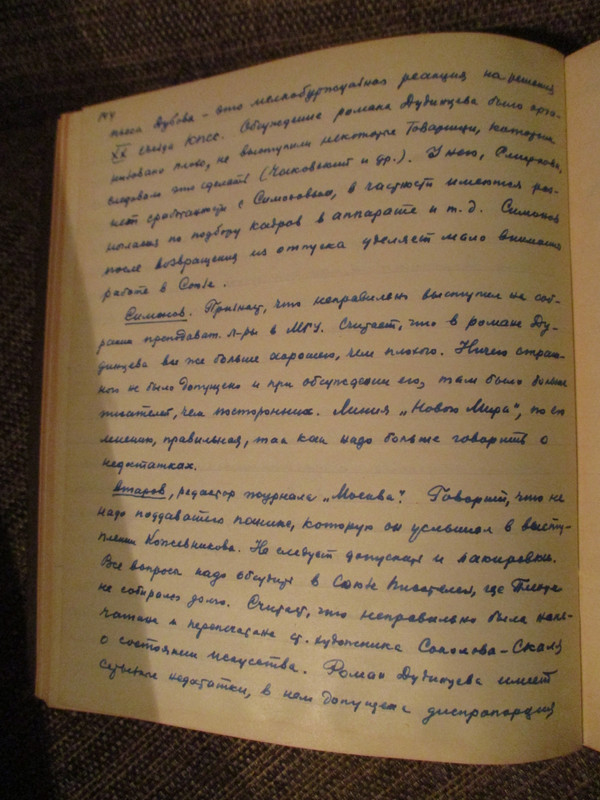 пьеса Зубова – это мелкобуржуазная реакция на решения
XX съезда КПСС. Обсуждение романа Дудинцева было орга-
низовано плохо, не выступили некоторые товарищи, которым
следовало это сделать (Чаковский и др.). У него, Смирнова,
нет сработанности с Симоновым, в частности имеются раз-
ногласия по подбору кадров в аппарате и т.д. Симонов
после возвращения из отпуска уделяет мало внимания
работе в Союзе.
Симонов. Признает, что неправильно выступил на соб-
рании преподават. л-ры в МГУ. Считает, что в романе Ду-
динцева все же больше хорошего, чем плохого. Ничего страш-
ного не было допущено и при обсуждении его, там было больше
писателей, чем посторонних. Линия „Нового Мира", по его
мнению, правильная, так как надо больше говорить о
недостатках.
Атаров, редактор журнала „Москва". Говорит, что не
надо поддаваться панике, которую он услышал в высту-
плении Кожевникова. Не следует допускать и лакировки.
Все вопросы надо обсуждать в Союзе Писателей, где
не собирался долго. Считает, что неправильно была напе-
чатана и перепечатана ст. художника Соколова-Скаля
о состоянии искусства. Роман Дудинцева имеет
серьезные недостатки, в нем допущена диспропорция